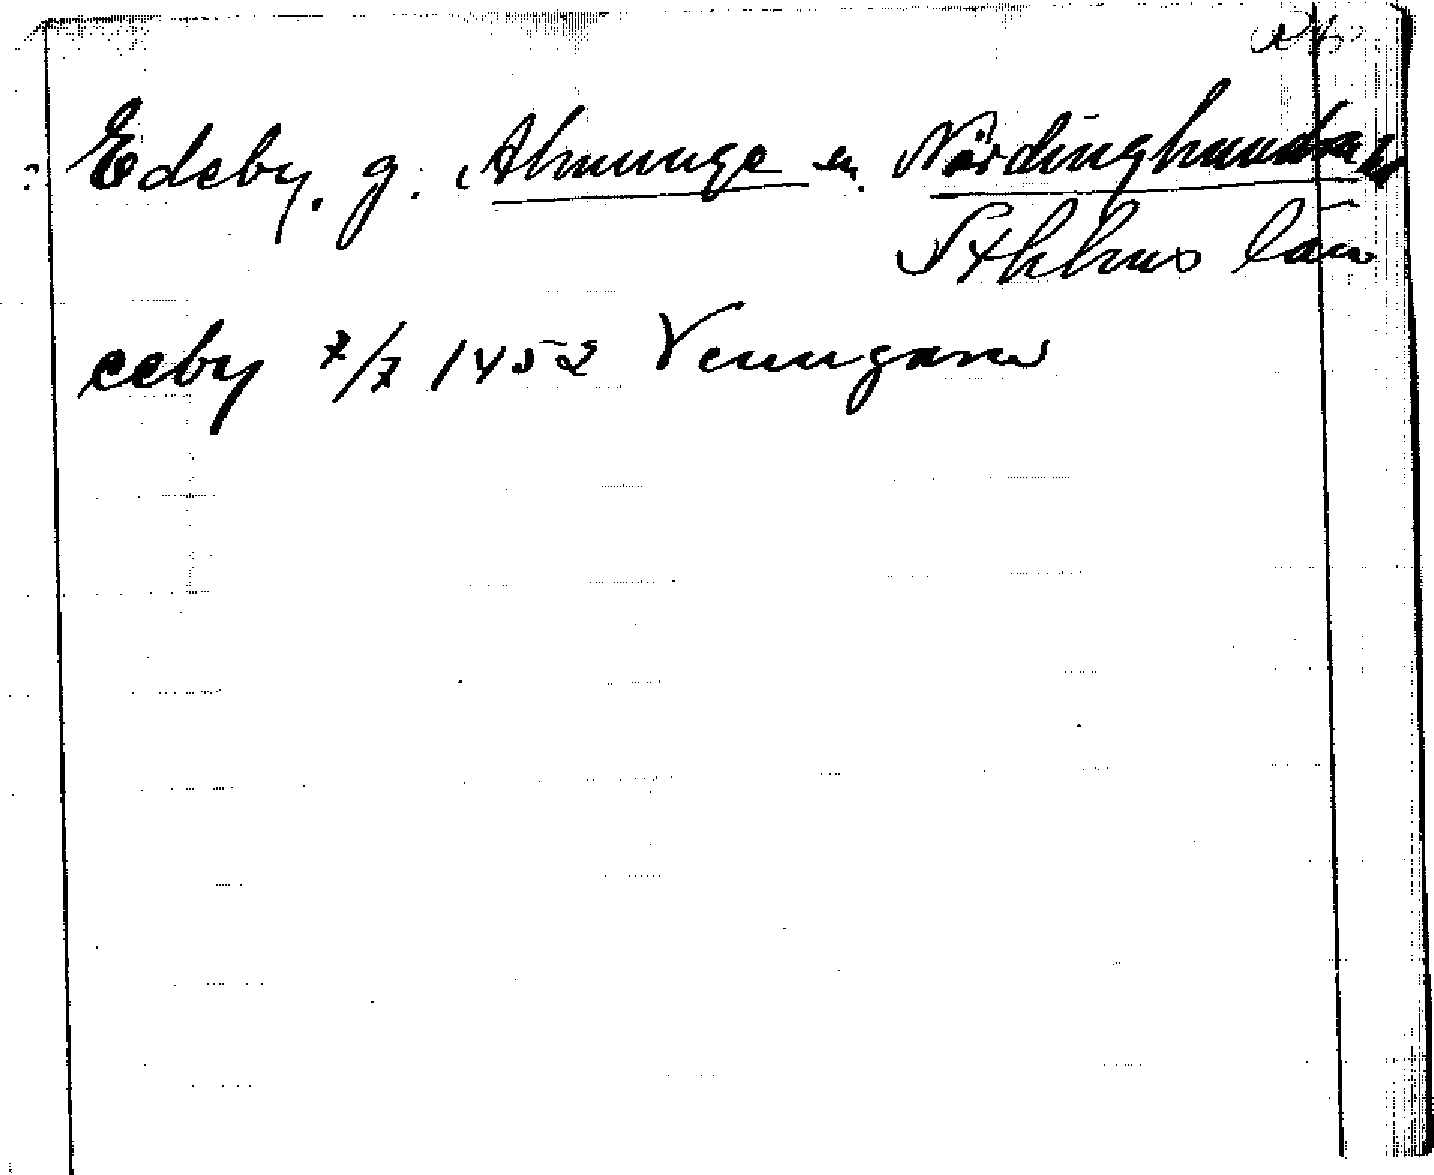 Edeby. g. Almunge sn. Närdinghundra hd
Sthlms län
eeby 7/7 1452 Venngarn